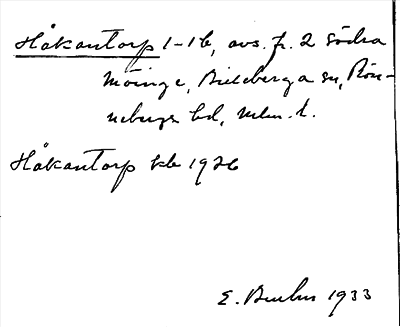 Håkantorp 1-16, avs. fr. 2 Södra
Möinge, Billeberga sn, Rön-
nebergs hd, Mlm. l.
Håkantorp kb 1926
E. 1933